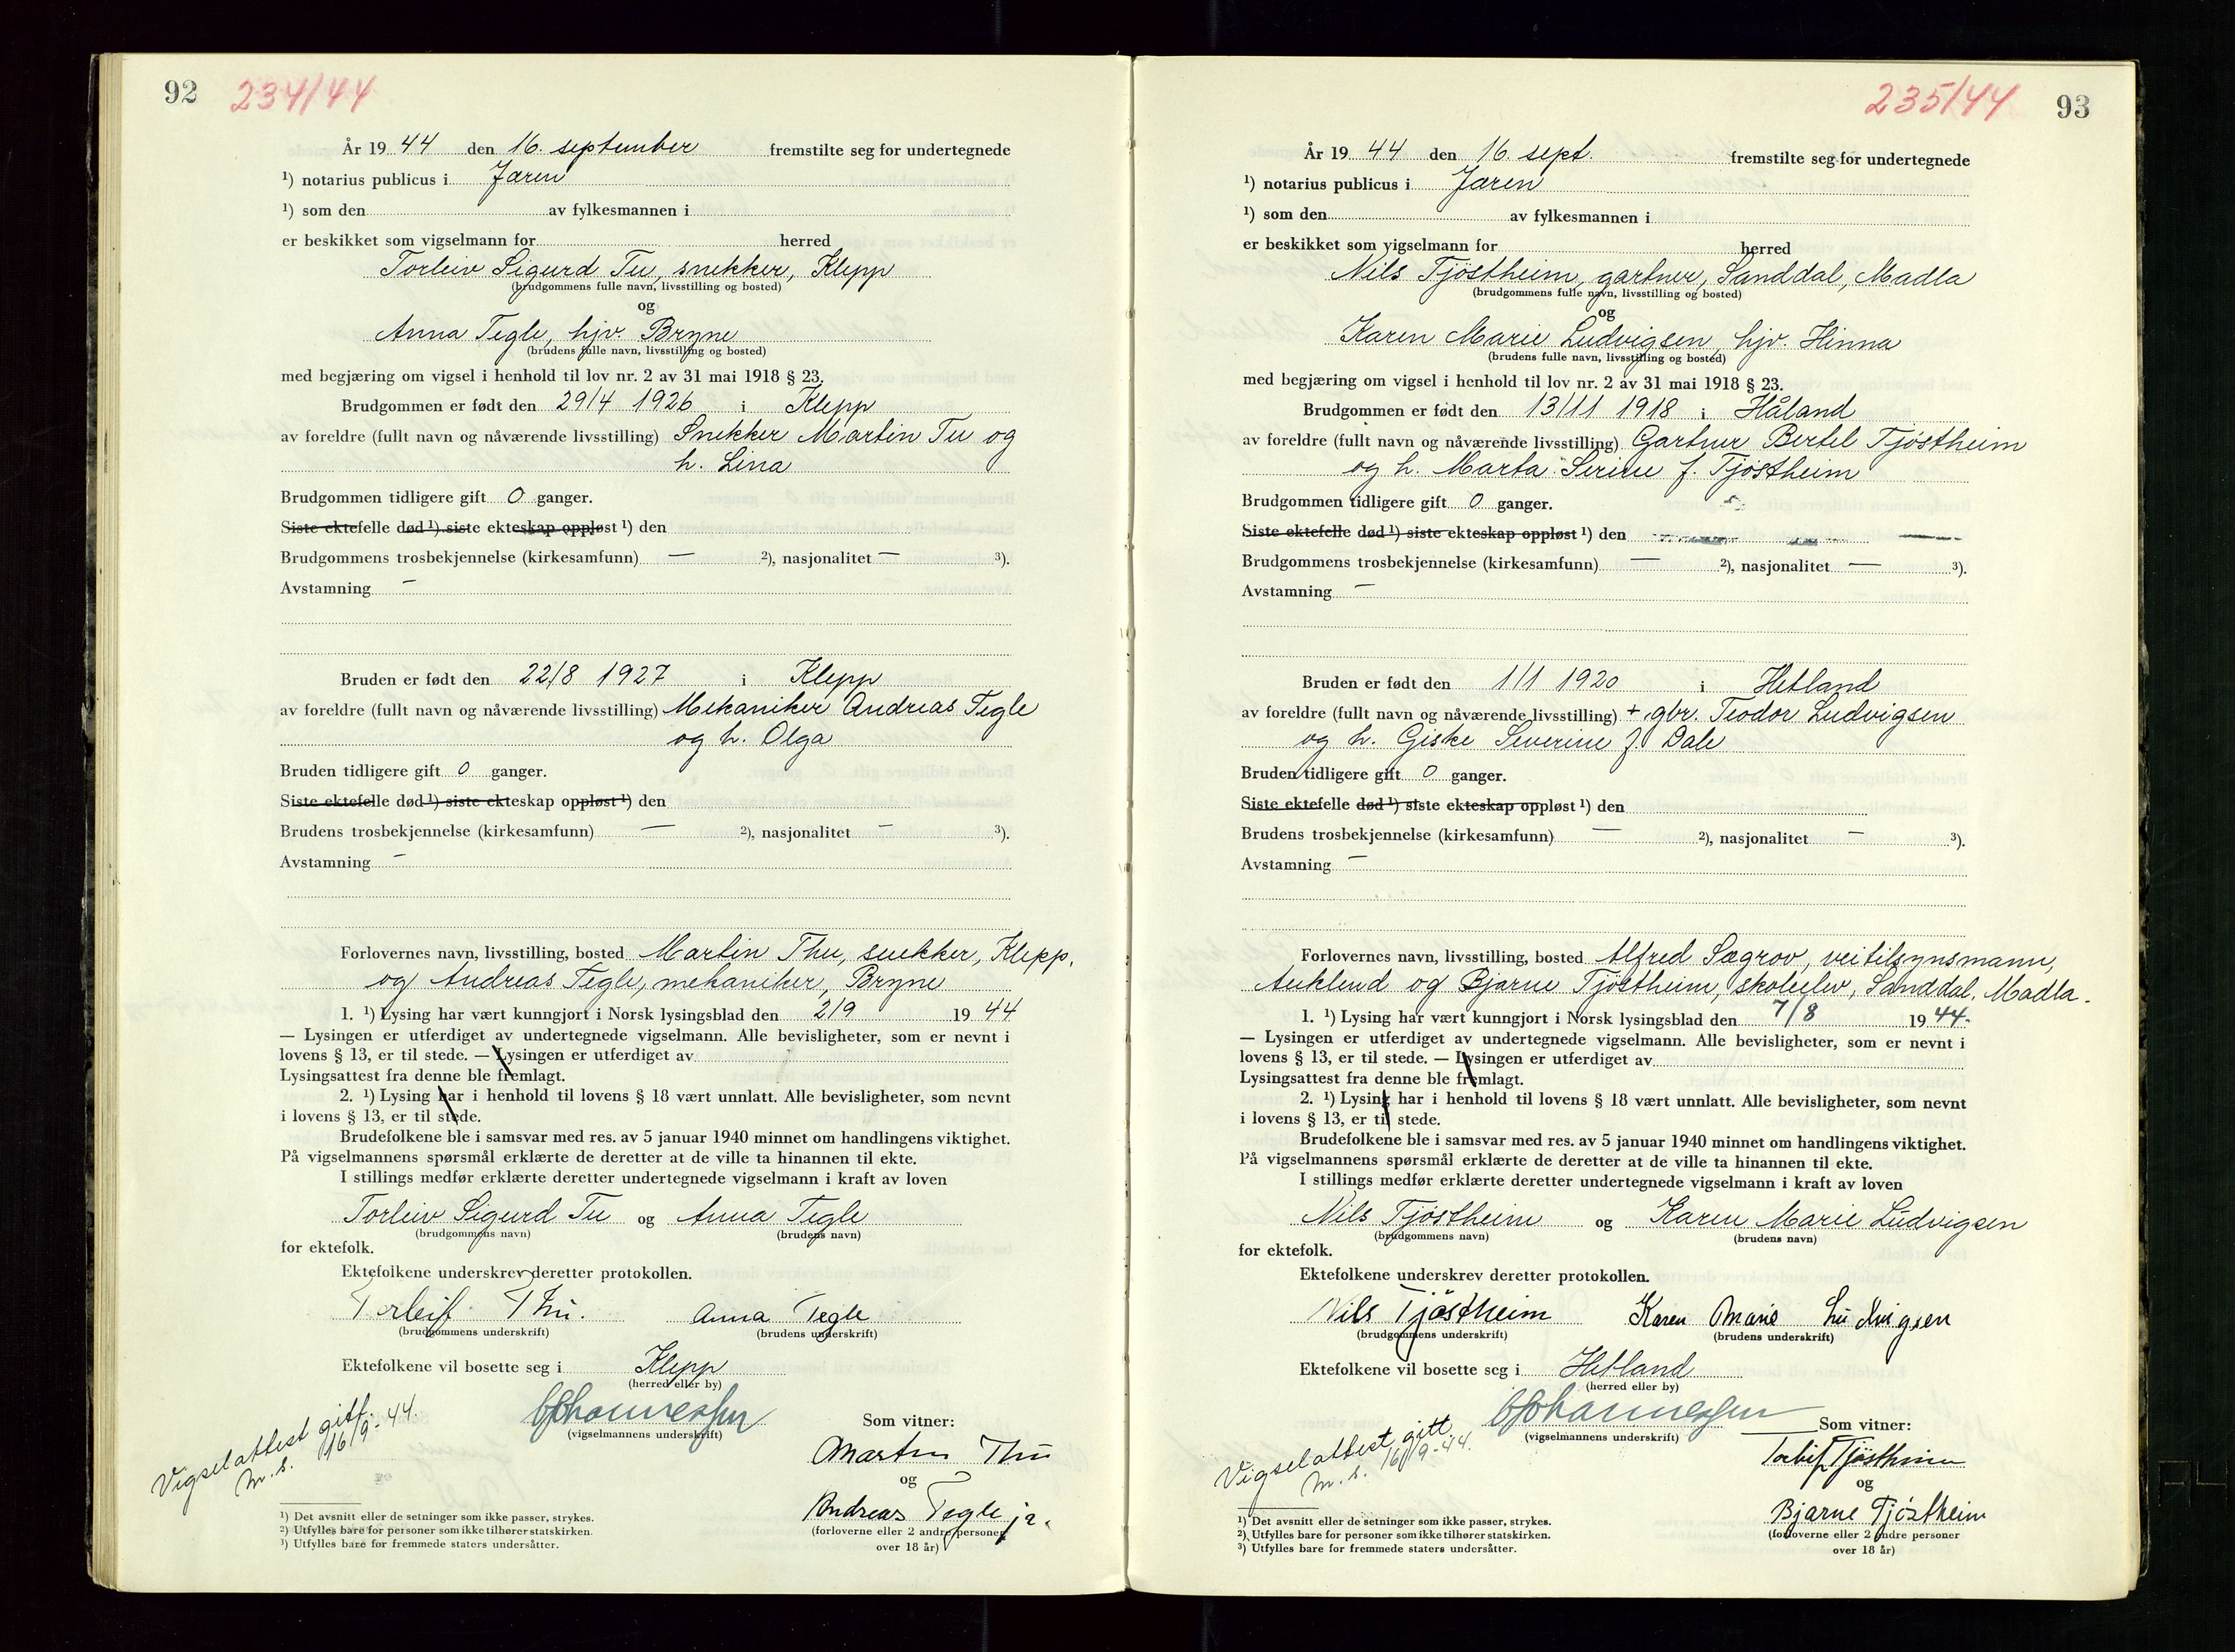 92 234/44
År 19 44 den 16. september fremstilte seg for undertegnede
¹) notarius publicus i Jæren
¹) som den av fylkesmannen i
er beskikket som vigselmann for herred
Torleiv Sigurd Tu, snekker, Klepp
(brudgommens fulle navn, livsstilling og bosted)
og
Anna Tegle, hjv. Bryne
(brudens fulle navn, livsstilling og bosted)
med begjæring om vigsel i henhold til lov nr. 2 av 31 mai 1918 § 23.
Brudgommen er født den 29/4 1926 i Klepp
av foreldre (fullt navn og nåværende livsstilling) Snekker Martin Tu og
h. Lina
Brudgommen tidligere gift 0 ganger.
Siste ektefelle død ¹) siste ekteskap oppløst ¹) den
Brudgommens trosbekjennelse (kirkesamfunn) — ²), nasjonalitet — ³).
Avstamning —
Bruden er født den 22/8 1927 i Klepp
av foreldre (fullt navn og nåværende livsstilling) Mekaniker Andreas Tegle
og h. Olga
Bruden tidligere gift 0 ganger.
Siste ektefelle død ¹) siste ekteskap oppløst ¹) den
Brudens trosbekjennelse (kirkesamfunn) — ²), nasjonalitet — ³).
Avstamning —
Forlovernes navn, livsstilling, bosted Martin Thu, snekker, Klepp.
og Andreas Tegle, mekaniker, Bryne
1. ¹) Lysing har vært kunngjort i Norsk lysingsblad den 2/9 19 44
— Lysingen er utferdiget av undertegnede vigselmann. Alle bevisligheter, som er nevnt i
lovens § 13, er til stede. — Lysingen er utferdiget av
Lysingsattest fra denne ble fremlagt.
2. ¹) Lysing har i henhold til lovens § 18 vært unnlatt. Alle bevisligheter, som nevnt
i lovens § 13, er til stede.
Brudefolkene ble i samsvar med res. av 5 januar 1940 minnet om handlingens viktighet.
På vigselmannens spørsmål erklærte de deretter at de ville ta hinannen til ekte.
I stillings medfør erklærte deretter undertegnede vigselmann i kraft av loven
Torleiv Sigurd Tu og Anna Tegle
(brudgommens navn) (brudens navn)
for ektefolk.
Ektefolkene underskrev deretter protokollen.
Torleif Thu. Anna Tegle
(brudgommens underskrift) (brudens underskrift)
Ektefolkene vil bosette seg i Klepp
(herred eller by)
Vigselattest gitt.
m.s. 16/9-44.
Johannessen
(vigselmannens underskrift)
Som vitner:
Martin Thu
og
Andreas Tegle jr.
(forloverne eller 2 andre personer
over 18 år)
¹) Det avsnitt eller de setninger som ikke passer, strykes.
²) Utfylles bare for personer som ikke tilhører statskirken.
³) Utfylles bare for fremmede staters undersåtter.
235/44 93
År 19 44 den 16. sept. fremstilte seg for undertegnede
¹) notarius publicus i Jæren
¹) som den av fylkesmannen i
er beskikket som vigselmann for herred
Nils Tjöstheim, gartner, Sanddal, Madla
(brudgommens fulle navn, livsstilling og bosted)
og
Karen Marie Ludvigsen, hjv. Hinna
(brudens fulle navn, livsstilling og bosted)
med begjæring om vigsel i henhold til lov nr. 2 av 31 mai 1918 § 23.
Brudgommen er født den 13/11 1918 i Håland
av foreldre (fullt navn og nåværende livsstilling) Gartner Bertel Tjöstheim
og h. Marta Serine f. Tjöstheim
Brudgommen tidligere gift 0 ganger.
Siste ektefelle død ¹) siste ekteskap oppløst ¹) den
Brudgommens trosbekjennelse (kirkesamfunn) — ²), nasjonalitet — ³).
Avstamning —
Bruden er født den 1/1 1920 i Hetland
av foreldre (fullt navn og nåværende livsstilling) + gbr. Teodor Ludvigsen
og h. Giske Severine f. Dale
Bruden tidligere gift 0 ganger.
Siste ektefelle død ¹) siste ekteskap oppløst ¹) den
Brudens trosbekjennelse (kirkesamfunn) — ²), nasjonalitet — ³).
Avstamning —
Forlovernes navn, livsstilling, bosted Alfred Sægrov, veitilsynsmann,
Auklend og Bjarne Tjöstheim, skoleelev, Sanddal, Madla.
1. ¹) Lysing har vært kunngjort i Norsk lysingsblad den 7/8 19 44.
— Lysingen er utferdiget av undertegnede vigselmann. Alle bevisligheter, som er nevnt i
lovens § 13, er til stede. — Lysingen er utferdiget av
Lysingsattest fra denne ble fremlagt.
2. ¹) Lysing har i henhold til lovens § 18 vært unnlatt. Alle bevisligheter, som nevnt
i lovens § 13, er til stede.
Brudefolkene ble i samsvar med res. av 5 januar 1940 minnet om handlingens viktighet.
På vigselmannens spørsmål erklærte de deretter at de ville ta hinannen til ekte.
I stillings medfør erklærte deretter undertegnede vigselmann i kraft av loven
Nils Tjöstheim og Karen Marie Ludvigsen
(brudgommens navn) (brudens navn)
for ektefolk.
Ektefolkene underskrev deretter protokollen.
Nils Tjöstheim Karen Marie Ludvigsen
(brudgommens underskrift) (brudens underskrift)
Ektefolkene vil bosette seg i Hetland
(herred eller by)
Vigselattest gitt
m.s. 16/9-44.
Johannessen
(vigselmannens underskrift)
Som vitner:
Tjöstheim
og
Bjarne Tjöstheim
(forloverne eller 2 andre personer
over 18 år)
¹) Det avsnitt eller de setninger som ikke passer, strykes.
²) Utfylles bare for personer som ikke tilhører statskirken.
³) Utfylles bare for fremmede staters undersåtter.